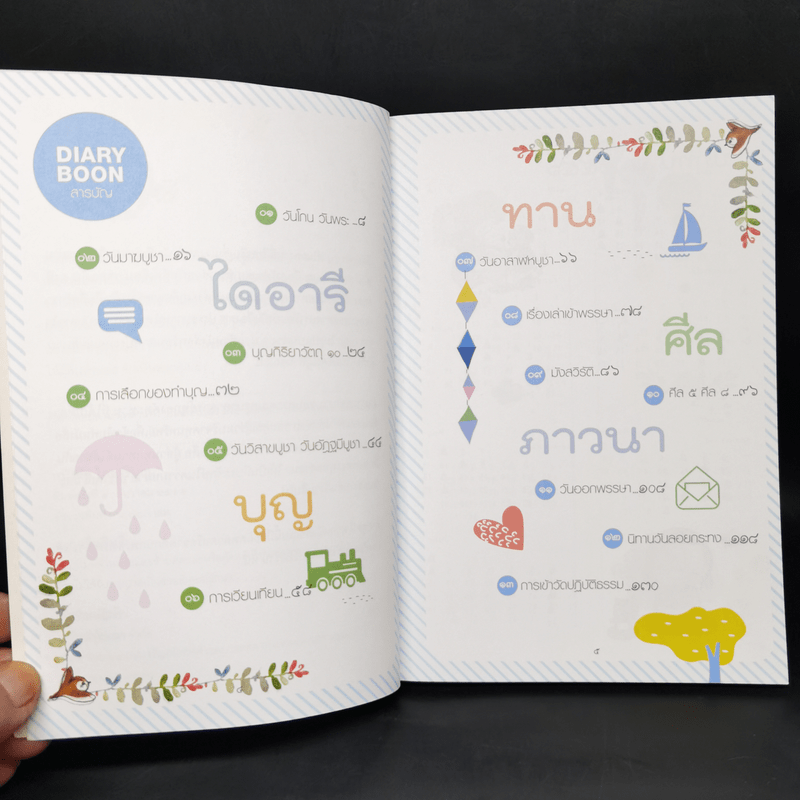 DIARY
BOON
สารบัญ
๐๑ วันโกน วันพระ...๘
๐๒ วันมาฆบูชา...๑๖
ไดอารี
๐๓ บุญกิริยาวัตถุ ๑๐...๒๔
๐๔ การเลือกของทำบุญ...๓๒
๐๕ วันวิสาขบูชา วันอัฏฐมีบูชา...๔๔
บุญ
๐๖ การเวียนเทียน...๕๘
ทาน
๐๗ วันอาสาฬหบูชา...๖๖
๐๘ เรื่องเล่าเข้าพรรษา...๗๘
ศีล
๐๙ มังสวิรัติ...๘๖
๑๐ ศีล ๕ ศีล ๘...๙๖
ภาวนา
๑๑ วันออกพรรษา...๑๐๘
๑๒ นิทานวันลอยกระทง...๑๑๘
๑๓ การเข้าวัดปฏิบัติธรรม...๑๓๐
๕